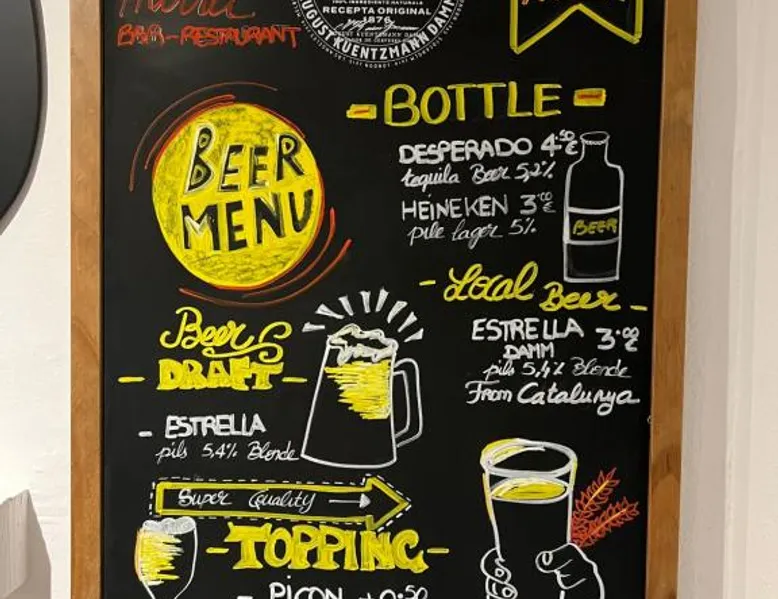 BEER-RESTAURANT
RECEPTA ORIGINAL
1876
AUGUST KUENTZMANN DAMM
BEER
MENU
-BOTTLE-
DESPERADO 4.50€
tequila Beer 5,2%
HEINEKEN 3.00€
pile lager 5%
BEER
-Local Beer-
ESTRELLA 3.00€
DAMM
pils 5,4% Blonde
From Catalunya
Beers
-DRAFT-
- ESTRELLA
pils 5,4% Blonde
Super Quality
-TOPPING-
- PICON +0.50